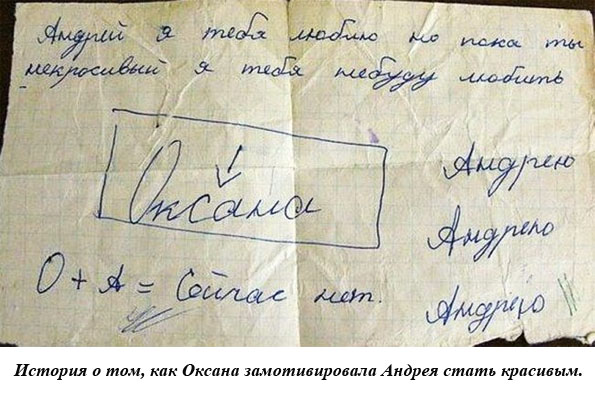 Андрей я тебя люблю но пока ты
некросивый я тебя небуду любить
Оксана
Андрею
Андрею
О + А = Сейчас нет.
Андрею
История о том, как Оксана замотивировала Андрея стать красивым.